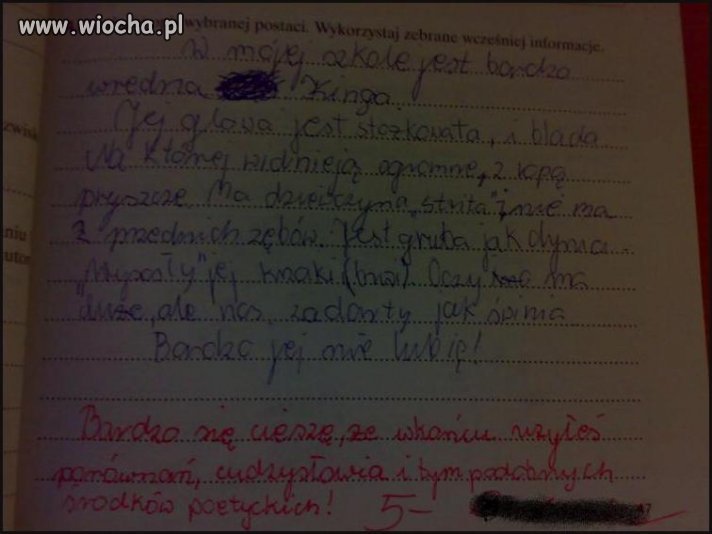 www.wiocha.pl
wybranej postaci. Wykorzystaj zebrane wcześniej informacje.
W mojej szkole jest bardzo
wredna Kinga.
Jej głowa jest stożkowata, i blada
Na której widnieją ogromne, z ropą
pryszcze. Ma dziewczyna "strita", nie ma
2 przednich zębów. Jest gruba jak dynia.
"Wyrosły" jej krzaki (brwi). Oczy ma
"duże, ale nos zadarty jak świnia
Bardzo jej nie lubię!
Bardzo się cieszę, że wkońcu użyłeś
porównań, cudzysłowia i tym podobnych
środków poetyckich! 5-
47